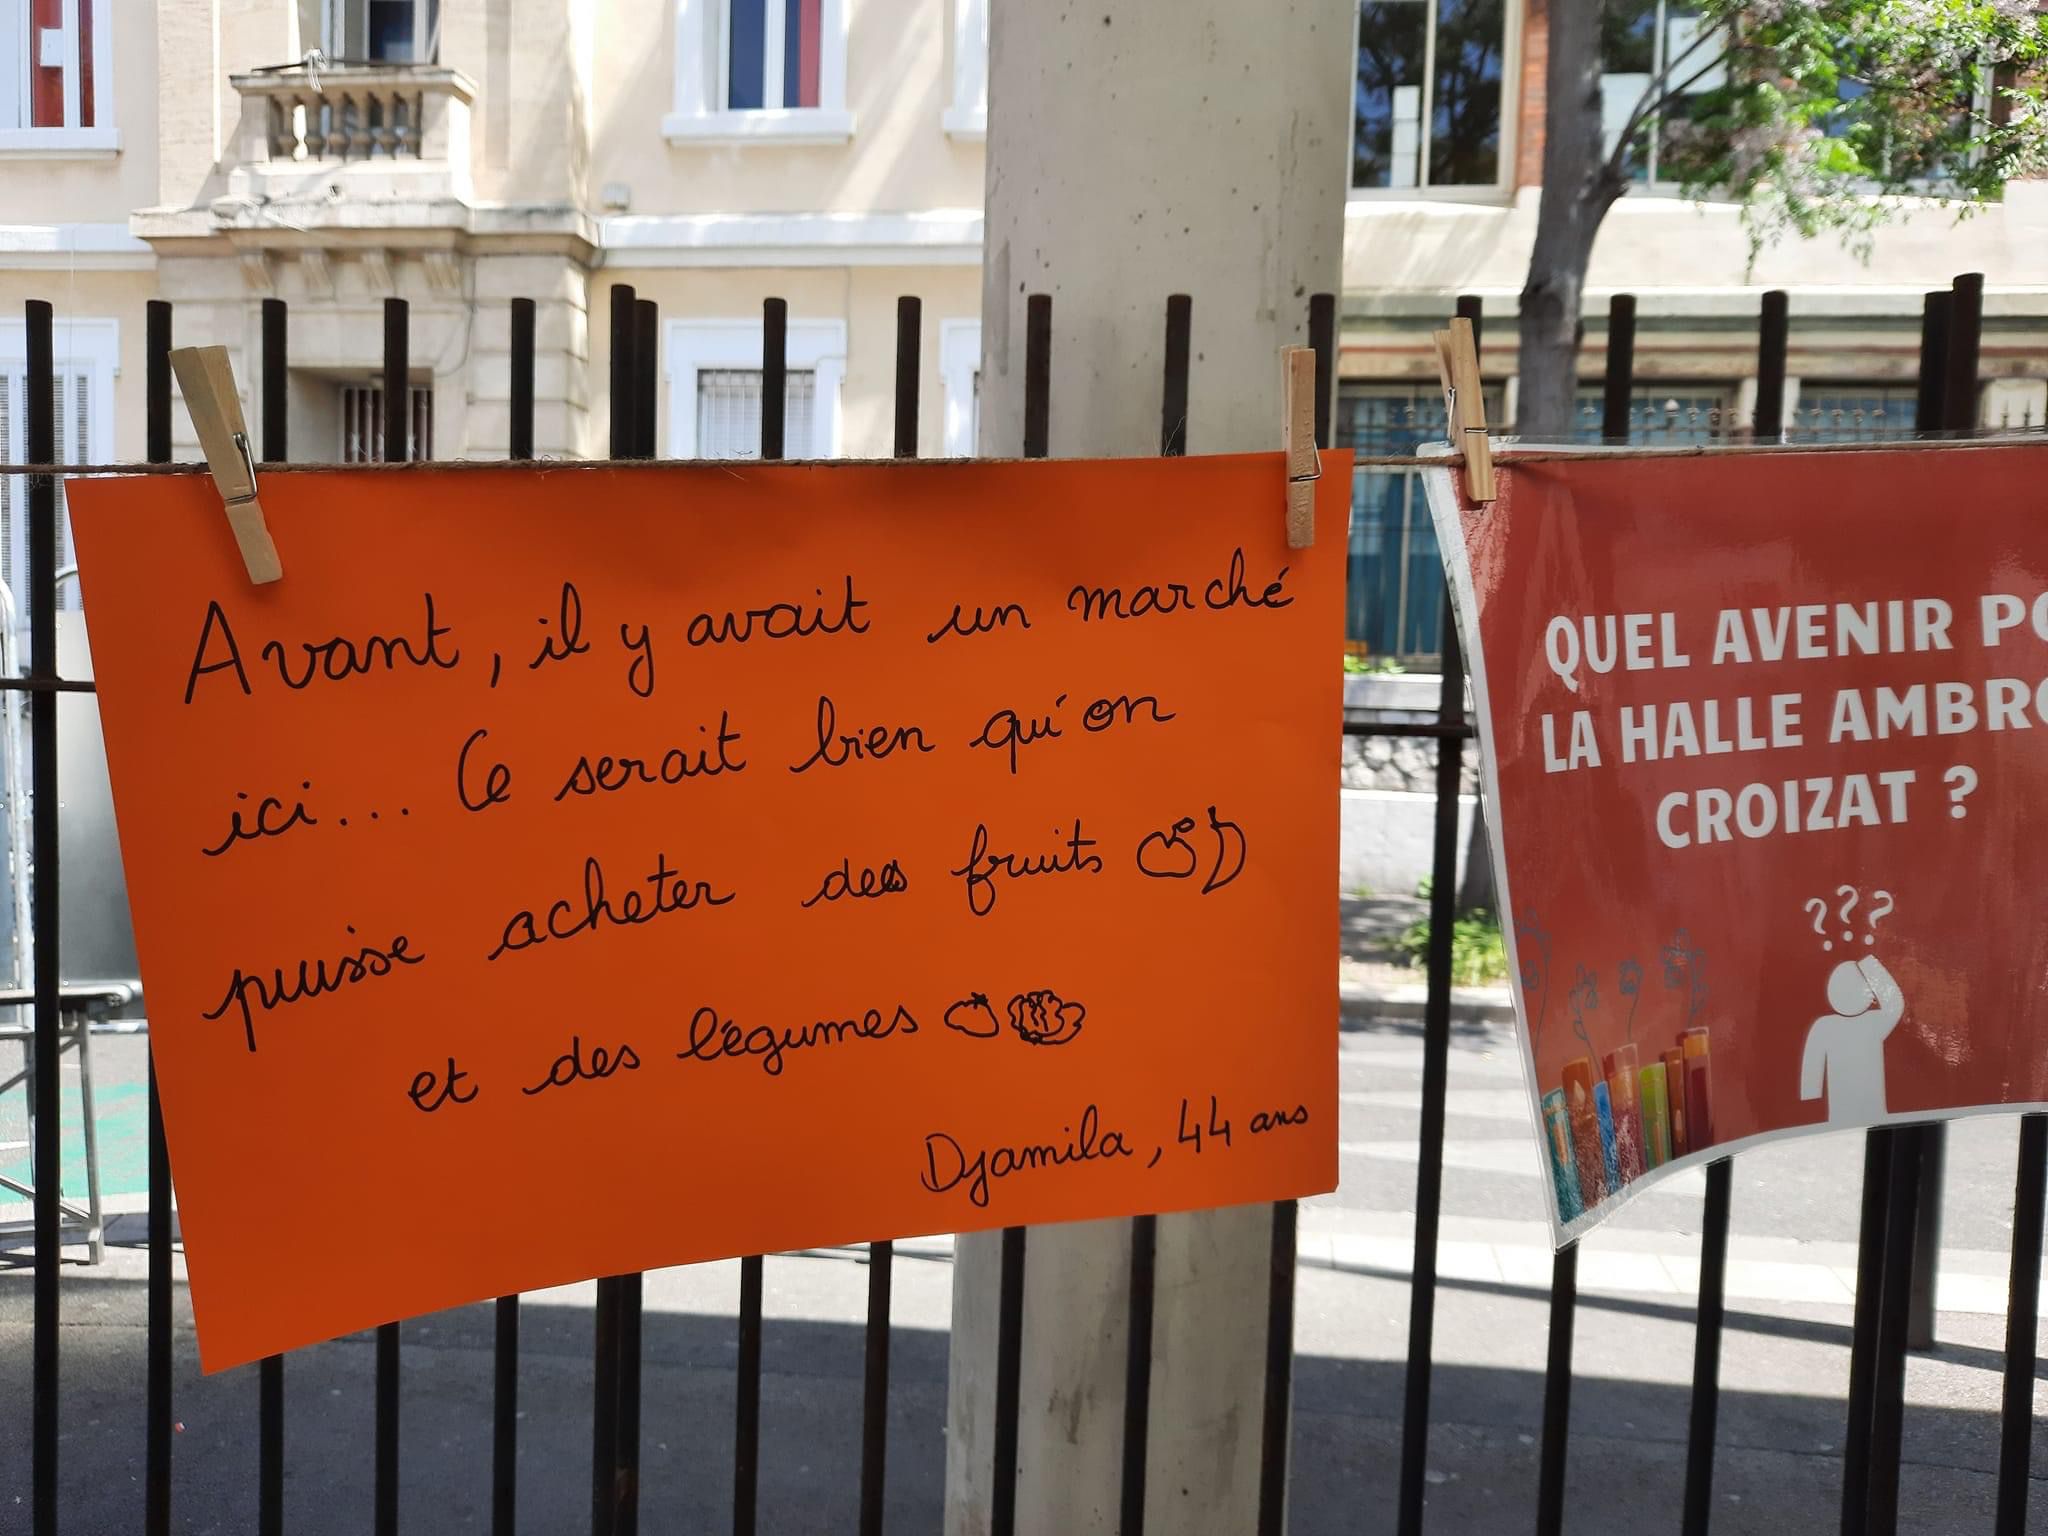 Avant, il y avait un marché
ici... Ce serait bien qu'on
puisse acheter des fruits
et des légumes
Djamila, 44 ans
QUEL AVENIR PO
LA HALLE AMBRO
CROIZAT ?
???